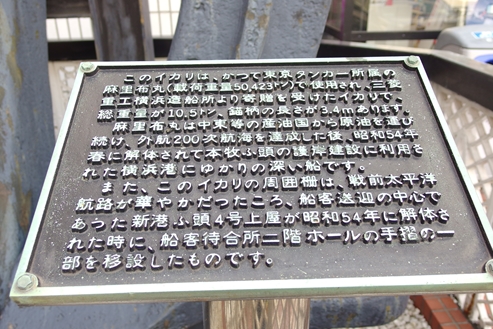 このイカリは、かつて東京タンカー所属の
麻里布丸(載荷重量50,423トン)で使用され、三菱
重工横浜造船所より寄贈を受けたイカリで、
総重量が10.5トン、錨柄の長さが3.4mあります。
麻里布丸は中東等の産油国から原油を運び
続け、外航200次航海を達成した後、昭和54年
春に解体されて本牧ふ頭の護岸建設に利用さ
れた横浜港にゆかりの深い船です。
また、このイカリの周囲柵は、戦前太平洋
航路が華やかだったころ、船客送迎の中心で
あった新港ふ頭4号上屋が昭和54年に解体さ
れた時に、船客待合所二階ホールの手摺の一
部を移設したものです。